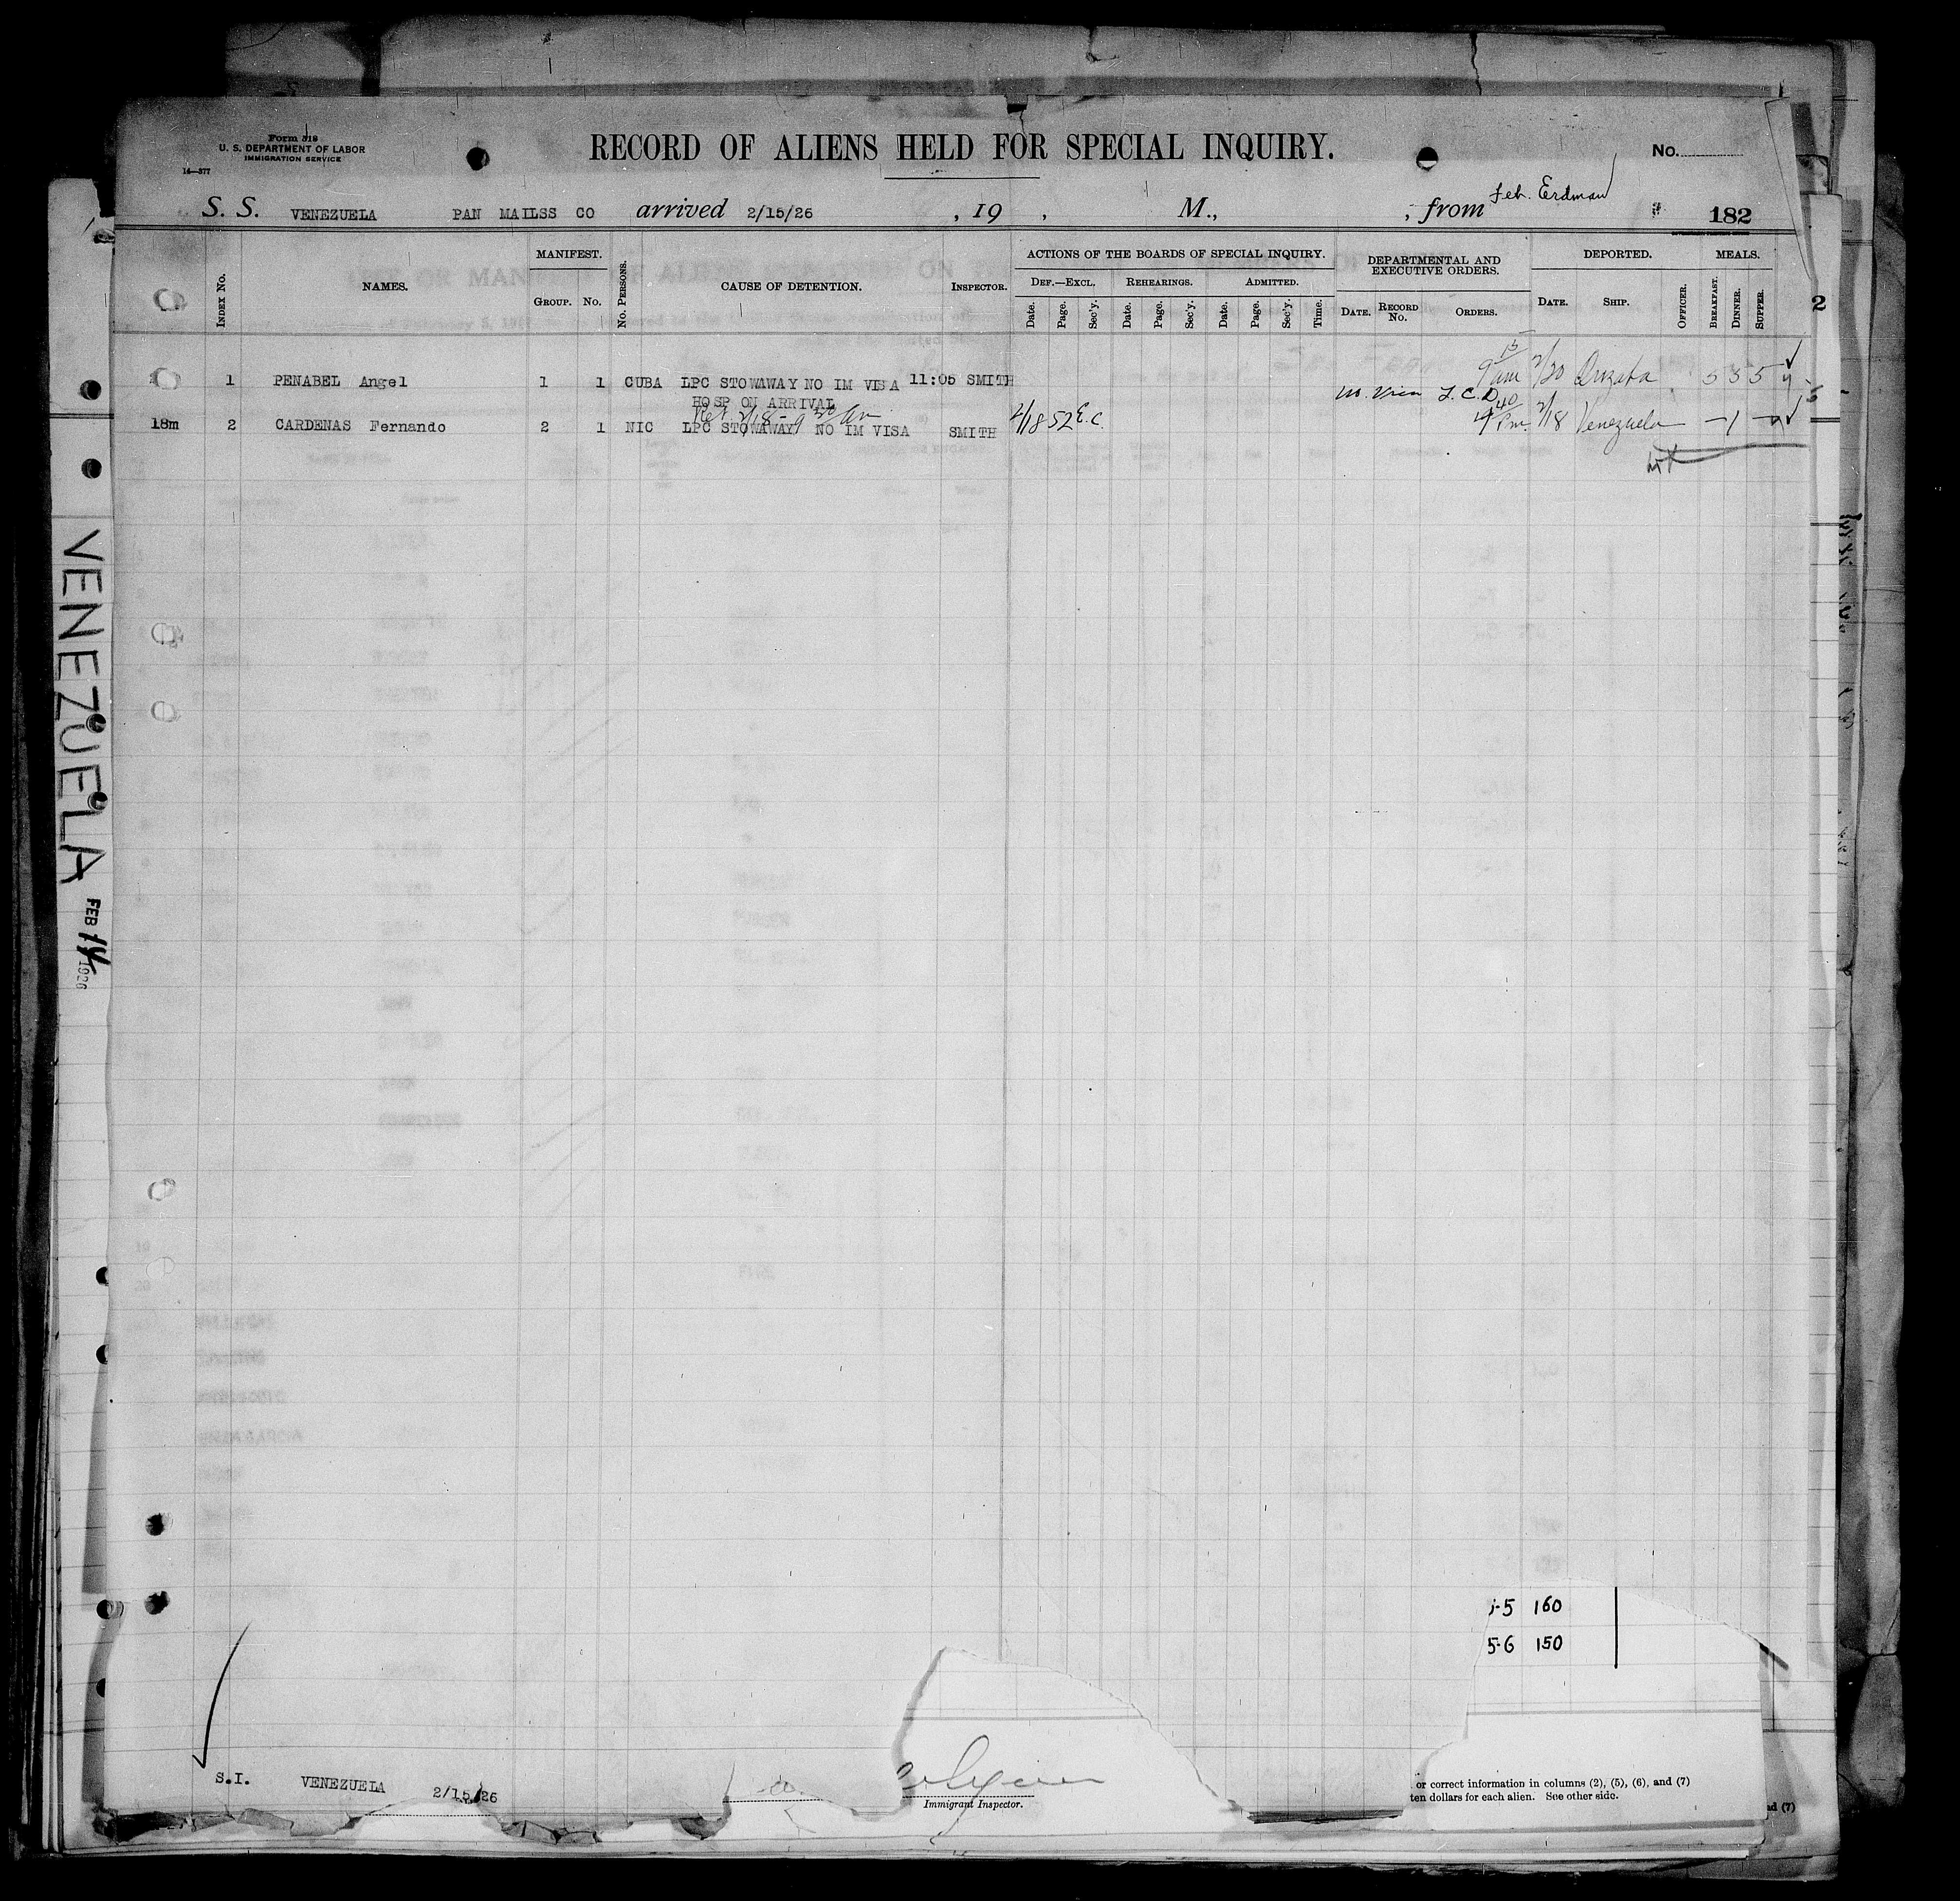 Form 318
U. S. DEPARTMENT OF LABOR
IMMIGRATION SERVICE
14—377
RECORD OF ALIENS HELD FOR SPECIAL INQUIRY.
No.
S. S. VENEZUELA PAN MAILSS CO arrived 2/15/26 , 19 , M., , from Feb. Erdman
182
INDEX NO. NAMES. MANIFEST. GROUP. NO. NO. PERSONS. CAUSE OF DETENTION. INSPECTOR. ACTIONS OF THE BOARDS OF SPECIAL INQUIRY. DEPARTMENTAL AND EXECUTIVE ORDERS. DEPORTED. MEALS.
DEF.—EXCL. REHEARINGS. ADMITTED.
Date. Page. Sec'y. Date. Page. Sec'y. Date. Page. Sec'y. Time. DATE. RECORD NO. ORDERS. DATE. SHIP. OFFICER. BREAKFAST. DINNER. SUPPER.
2
1 PENABEL Angel 1 1 CUBA LPC STOWAWAY NO IM VISA 11:05 SMITH 9 15 am 2/20 Orizaba 5 3 5
HOSP ON ARRIVAL
2/18 - 9 30 am
18m 2 CARDENAS Fernando 2 1 NIC LPC STOWAWAY NO IM VISA SMITH 2/18 52 E.C. 4 40 Pm. 2/18 Venezuela — 1 —
VENEZUELA
FEB 14 1926
-5 160
5-6 150
S.I. VENEZUELA 2/15/26
Immigrant Inspector.
or correct information in columns (2), (5), (6), and (7)
ten dollars for each alien. See other side.
and (7)